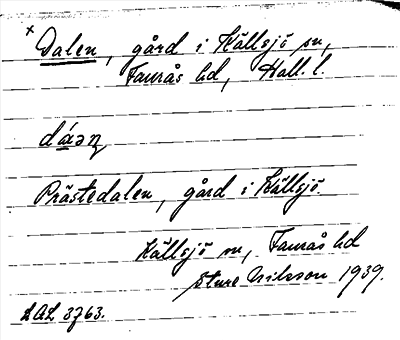 x Dalen, gård i Källsjö sn,
Faurås hd, Hall. l.
dáəɳ
Prästedalen, gård i Källsjö.
Källsjö sn, Faurås hd
Sture Nilsson 1939.
LAL 3763.